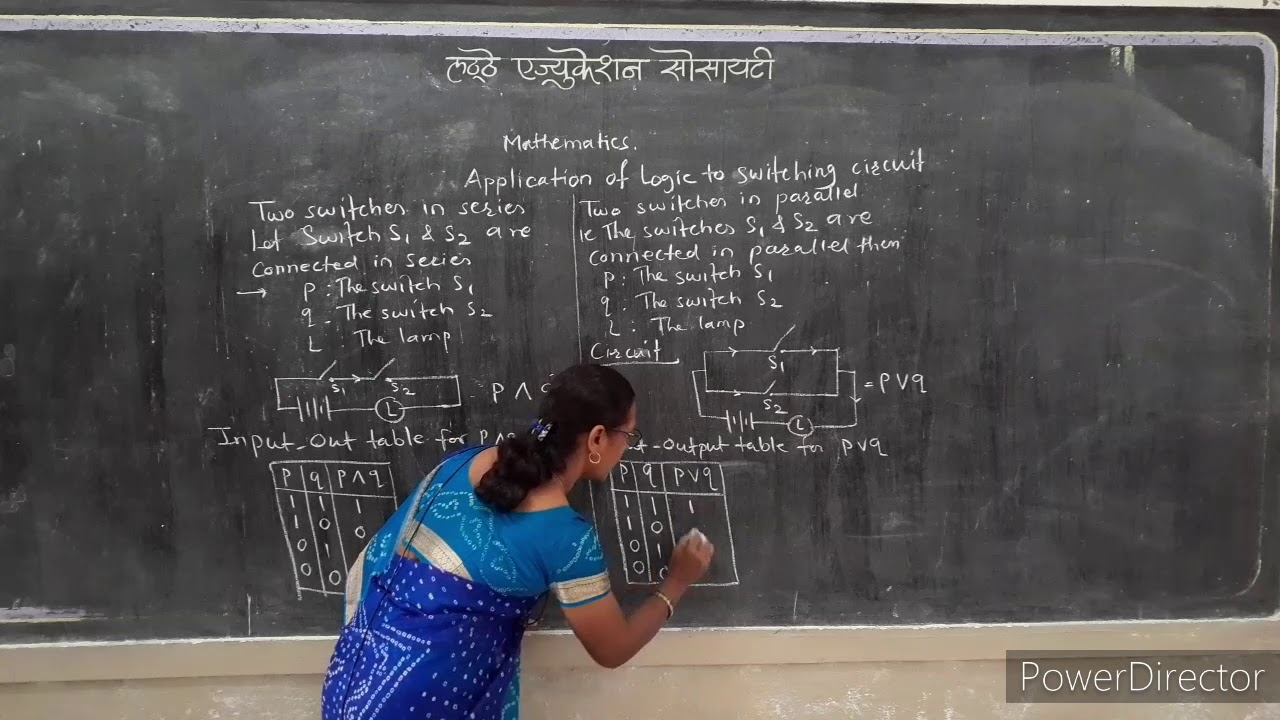 लठ्ठे एज्युकेशन सोसायटी
Mathematics.
Application of Logic to switching circuit
Two switches in series
Let Switch S₁ & S₂ are
Connected in series
→ p : The switch S₁
q : The switch S₂
L : The lamp
S₁ S₂
L
P ∧
Input-Out table for P∧
P q P∧q
1 1 1
1 0 0
0 1
0 0
Two switches in parallel
ie The switches S₁ & S₂ are
connected in parallel then
P : The switch S₁
q : The switch S₂
L : The lamp
Circuit
S₁
S₂
L
= P∨q
-Output table for P∨q
P q P∨q
1 1 1
1 0
0 1
0 0
PowerDirector